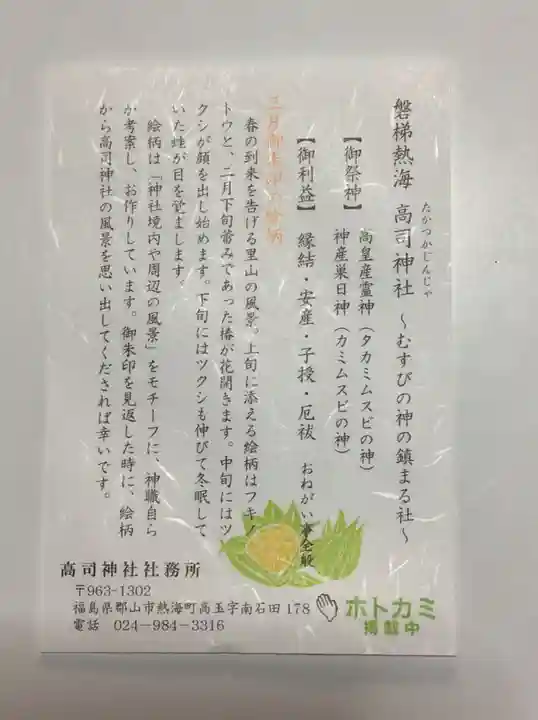 磐梯熱海 高司神社 ～むすびの神の鎮まる社～
たかつかじんじゃ
【御祭神】 高皇産霊神（タカミムスビの神）
神産巣日神（カミムスビの神）
【御利益】 縁結・安産・子授・厄祓 おねがい事全般
三月御朱印の絵柄
春の到来を告げる里山の風景。上旬に添える絵柄はフキノ
トウと、二月下旬蕾みであった椿が花開きます。中旬にはツ
クシが顔を出し始めます。下旬にはツクシも伸びて冬眠して
いた蛙が目を覚まします。
絵柄は「神社境内や周辺の風景」をモチーフに、神職自ら
が考案し、お作りしています。御朱印を見返した時に、絵柄
から高司神社の風景を思い出してくだされば幸いです。
高司神社社務所
〒963-1302
福島県郡山市熱海町高玉字南石田178
電話 024－984－3316
ホトカミ
掲載中